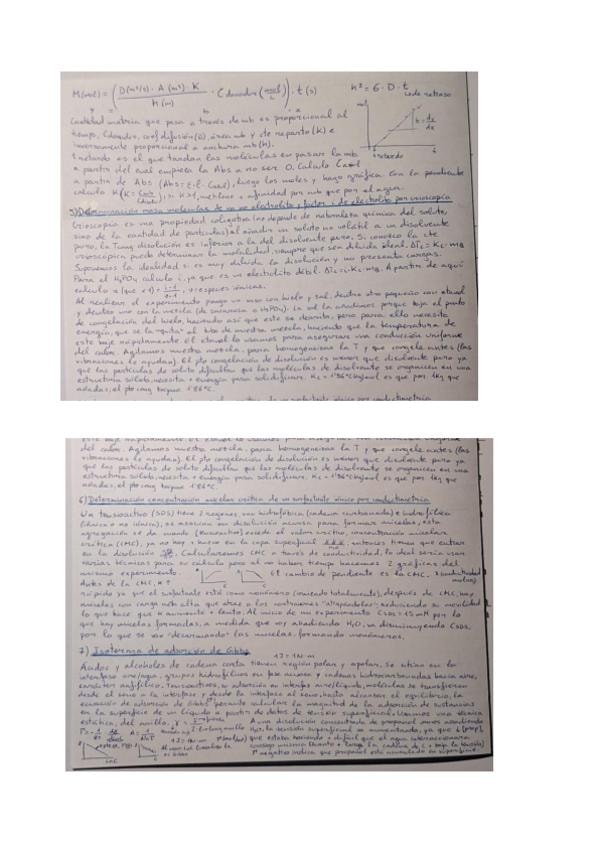 M(mol) = (D(m²/s) · A(m²) · K / h(m) · C donador (mol/L)) · t(s) h² = 6 · D · t
Cantidad materia que pasa a través de mb es proporcional al
tiempo, Cdonador, coef difusión (D), área mb y cte reparto (K) e
inversamente proporcional a anchura mb (h).
t retardo es el que tardan las moléculas en pasar la mb
a partir del cual empieza la Abs a no ser 0. Calculo
a partir de Abs, luego los moles y hago gráfica. Con la pendiente
calculo K
5) Determinación masa molecular de no electrolito y factor i de electrolito por crioscopia
Crioscopia es una propiedad coligativa (no depende de naturaleza química del soluto,
sino de la cantidad de partículas) al añadir un soluto no volátil a un disolvente
puro, la Tcong disolución es inferior a la del disolvente puro. Si conozco la cte
crioscópica puedo determinar la molalidad, siempre que sea diluida ideal.
Suponemos la idealidad si es muy diluida la disolución y no presenta cargas.
Para el H₃PO₄ calculo i, ya que es un electrolito débil. A partir de aquí
calculo α
Al realizar el experimento pongo un vaso con hielo y sal, dentro otro pequeño con etanol
y dentro uno con la mezcla (de sacarosa o H₃PO₄). La sal la añadimos porque baja el punto
de congelación del hielo, haciendo así que este se derrita, pero para ello necesita
energía, que se la "quita" al tubo de nuestra mezcla, haciendo que la temperatura de
este baje rápidamente. El etanol lo usamos para asegurar una conducción uniforme
del calor. Agitamos nuestra mezcla, para homogeneizar la T y que congele antes (las
vibraciones le ayudan). El pto congelación de disolución es menor que disolvente puro ya
que las partículas de soluto dificultan que las moléculas de disolvente se organicen en una
estructura sólida, necesita + energía para solidificar.
añadas, el pto cong baja 1'86°C.
este baje rápidamente. El etanol lo usamos para asegurar una conducción uniforme
del calor. Agitamos nuestra mezcla, para homogeneizar la T y que congele antes (las
vibraciones le ayudan). El pto congelación de disolución es menor que disolvente puro ya
que las partículas de soluto dificultan que las moléculas de disolvente se organicen en una
estructura sólida, necesita + energía para solidificar.
añadas, el pto cong baja 1'86°C
6) Determinación concentración micelar crítica de un surfactante iónico por conductimetría
Un tensioactivo (SDS) tiene 2 regiones, una hidrofóbica (cadena carbonada) e hidrofílica
(iónica o no iónica); se asocian en disolución acuosa para formar micelas, esta
agregación se da cuando excede el valor crítico, concentración micelar
crítica (CMC), ya no hay + hueco en la capa superficial, entonces tienen que entrar
en la disolución. Calcularemos CMC a través de conductividad, lo ideal sería usar
varias técnicas para su cálculo pero al no haber tiempo hacemos 2 gráficas del
mismo experimento. El cambio de pendiente es la CMC.
Antes de la CMC, K ↑
rápido ya que el surfactante está como monómero (ionizado totalmente), después de CMC, hay
micelas con carga neta alta que atrae a los contraiones "atrapándolos" reduciendo su movilidad
lo que hace que K aumente + lento. Al inicio de mi experimento CSDS = 15 mM por lo
que hay micelas formadas, a medida que voy añadiendo H₂O, va disminuyendo CSDS,
por lo que se van "desarmando" las micelas, formando monómeros.
7) Isoterma de adsorción de Gibbs 1J = 1N·m
Ácidos y alcoholes de cadena corta tienen región polar y apolar, se sitúan en la
interfase aire/agua, grupos hidrofílicos en fase acuosa y cadenas hidrocarbonadas hacia aire,
carácter anfifílico. Tensoactivos, su adsorción en interfase aire/líquido, moléculas se transfieren
desde el seno a la interfase y desde la interfase al seno, hasta alcanzar el equilibrio, la
ecuación de adsorción de Gibbs permite calcular la magnitud de la adsorción de sustancias
en la superficie de un líquido a partir de datos de tensión superficial. Usamos una técnica
estática, del anillo. A una disolución concentrada de propanol vamos añadiendo
H₂O, la tensión superficial va aumentando, ya que ↓[prop],
que estaba haciendo + difícil que el agua interaccionara
consigo misma
negativo indica que propanol está acumulado en superficie